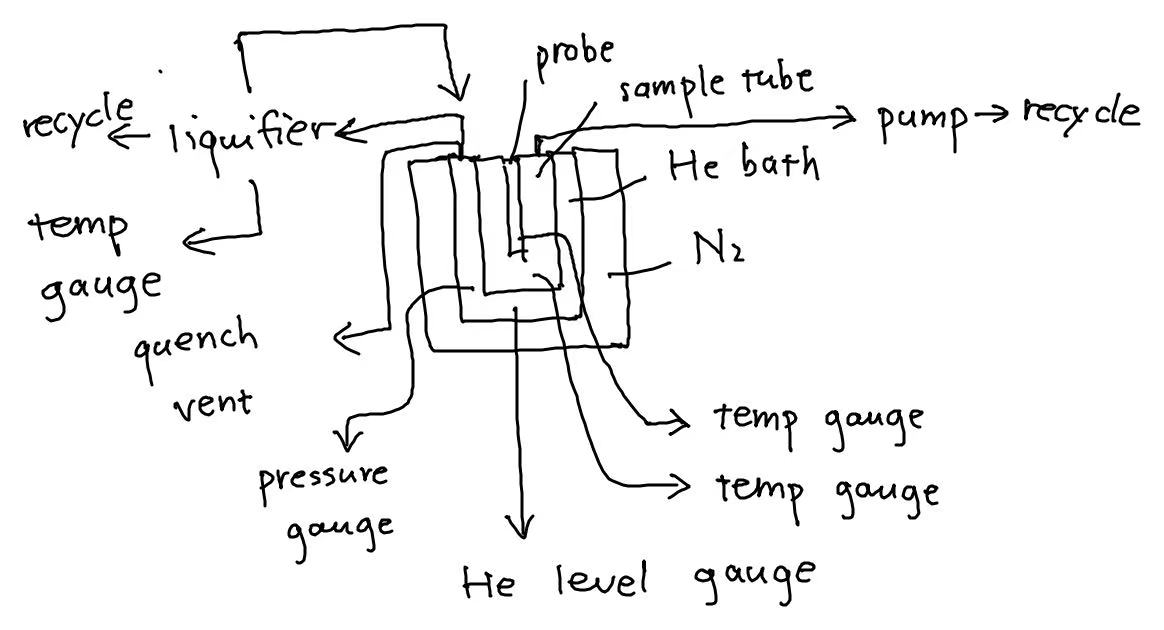 probe
sample tube
recycle
liquifier
pump
recycle
He bath
temp
gauge
N2
quench
vent
pressure
gauge
temp gauge
temp gauge
He level gauge